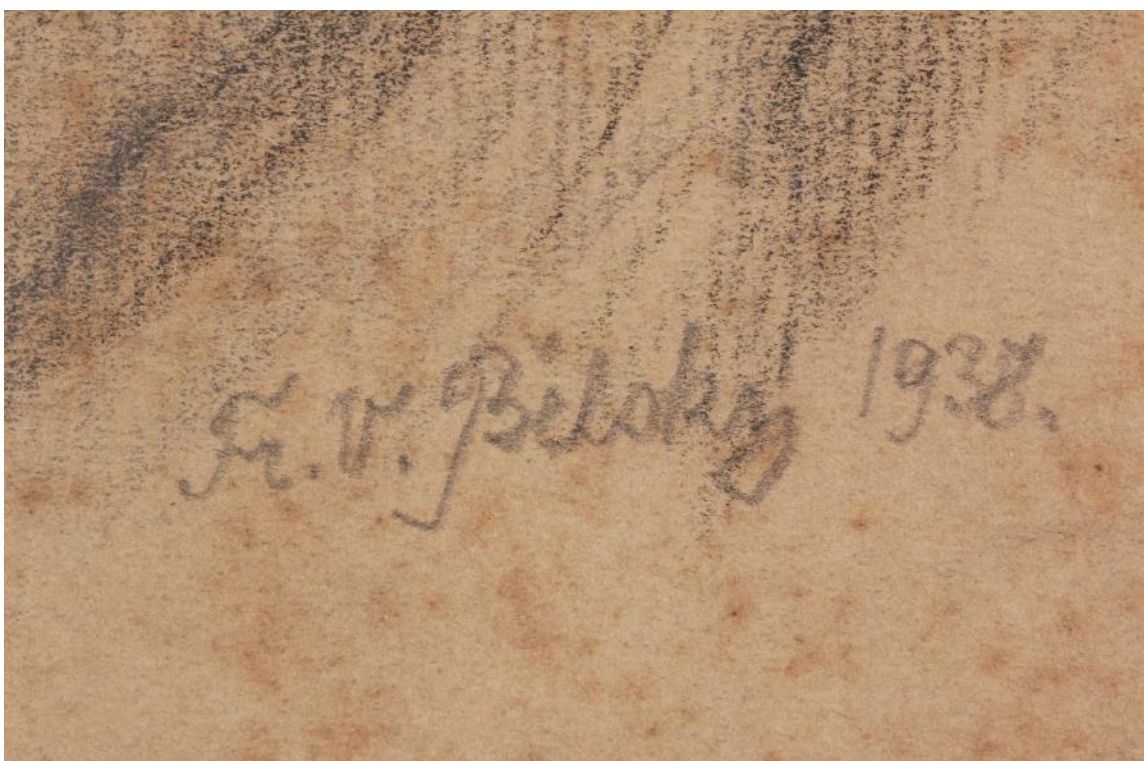 Fr. V. Bělský 1938.